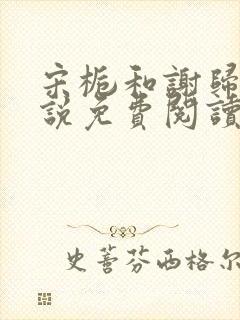 宋栀和謝歸
說免費閱讀
史蕾芬西格尔